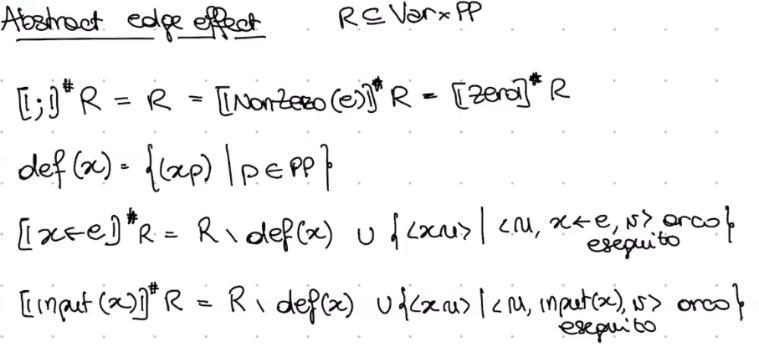 Abstract edge effect R ⊆ Var × PP
⟦;⟧# R = R = ⟦NonZero(e)⟧# R = ⟦Zero⟧# R
def(x) = {(x p) | p ∈ PP}
⟦x ← e⟧# R = R \ def(x) ∪ {<x u> | <u, x ← e, v> arco}
eseguito
⟦input(x)⟧# R = R \ def(x) ∪ {<x u> | <u, input(x), v> arco}
eseguito